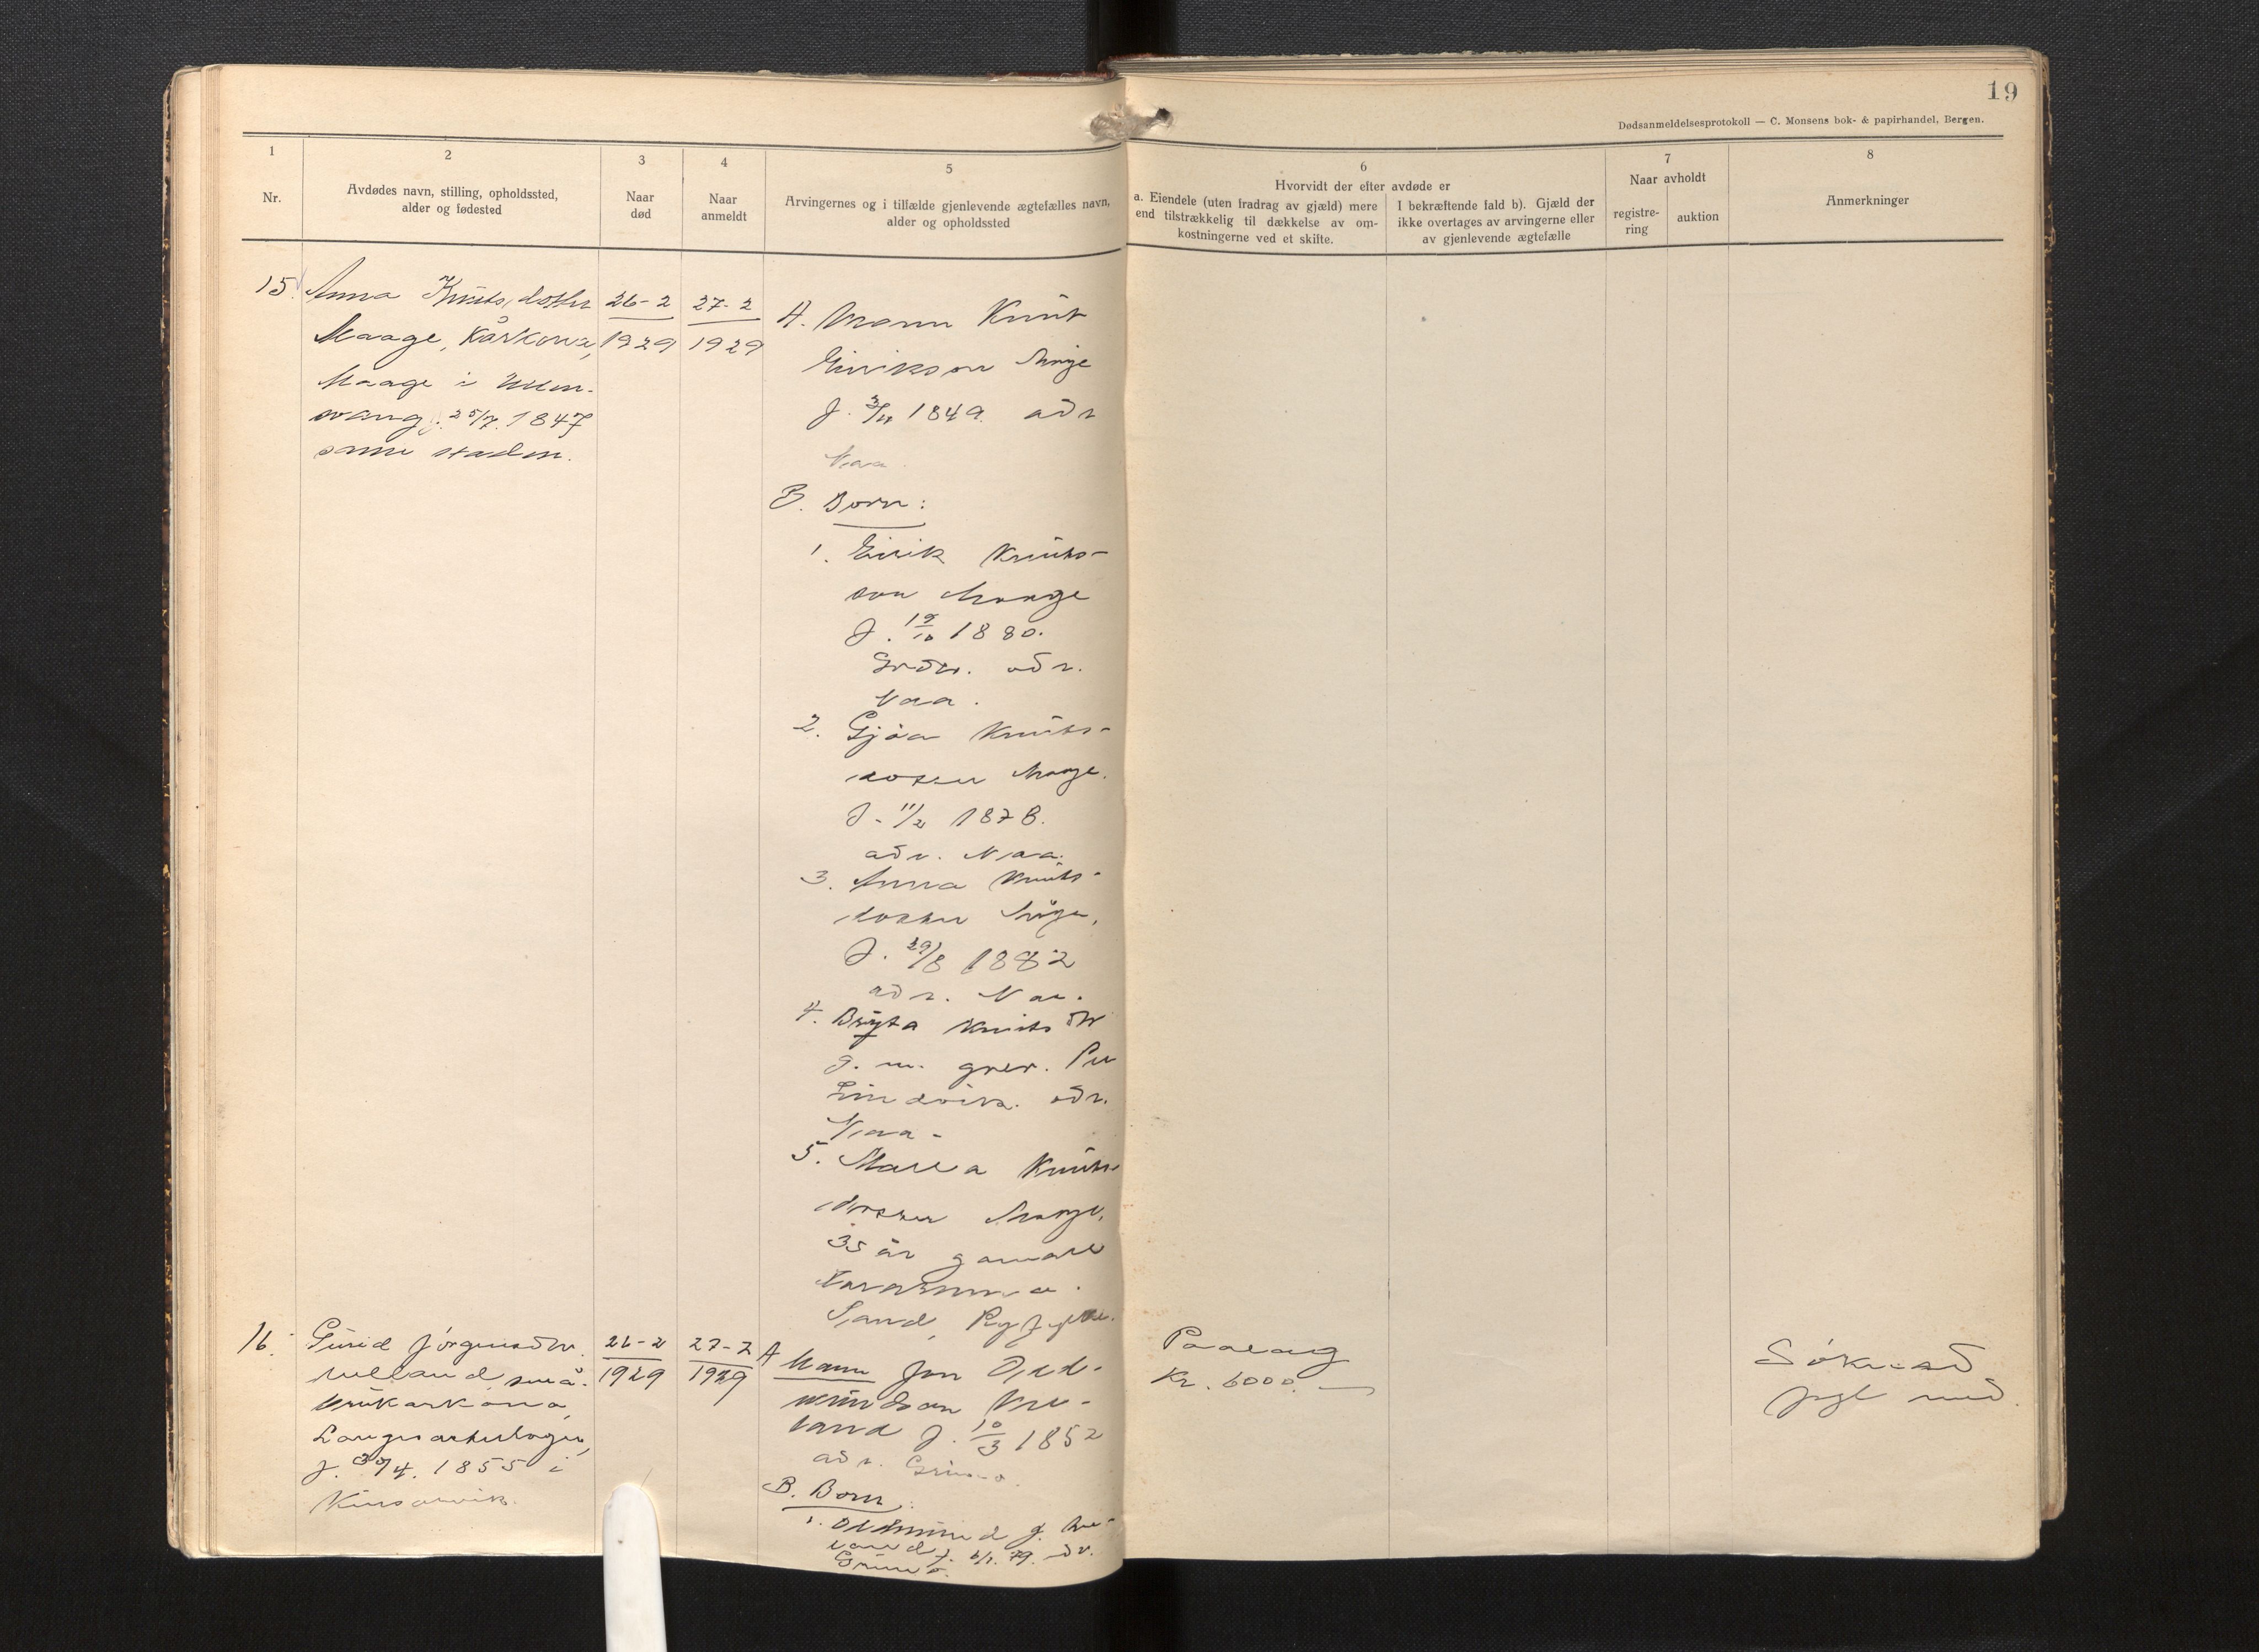 19
Dødsanmeldelsesprotokoll — C. Monsens bok- & papirhandel, Bergen.
1
Nr.
2
Avdødes navn, stilling, opholdssted,
alder og fødested
3
Naar
død
4
Naar
anmeldt
5
Arvingernes og i tilfælde gjenlevende ægtefælles navn,
alder og opholdssted
6
Hvorvidt der efter avdøde er
a. Eiendele (uten fradrag av gjæld) mere
end tilstrækkelig til dækkelse av om-
kostningerne ved et skifte.
I bekræftende fald b). Gjæld der
ikke overtages av arvingerne eller
av gjenlevende ægtefælle
7
Naar avholdt
registre-
ring
auktion
8
Anmerkninger
15.
Anna Knutsdotter
Maage, kårkona,
Maage i Ullen-
svang f. 25/7. 1847
same staden.
26-2
1929
27-2
1929
A. Mann Knut
Eirikson Måge
f. 1849. adr
Naa.
B. Born:
1. Eirik Knuts-
son Maage
f. 1880.
Grdbr. adr.
Naa.
2. Gjøa Knuts-
dotter Maage.
f. 11/2 1878.
adr. Naa.
3. Anna Knuts-
dotter Måge,
f. 29/8 1882
adr. Naa.
4. Bryta Knutsdtr
g. m. grbr. Per
Lindvik. adr.
Naa.
5. Marta Knuts-
dotter Maage,
35 år gamall
Sand, Ryfylke.
16.
Gurid Jørgensdtr.
småbrukarkona,
f. 30/4. 1855 i
Kinsarvik.
26-2
1929
27-2
1929
A Mann Jon Odd-
mundson
f. 10/3 1852
adr. Grimo.
B. Born:
1. Oddmund J.
f. 79. adr.
Grimo.
Paalag
Kr. 6000.—
Søknad
fylt med.